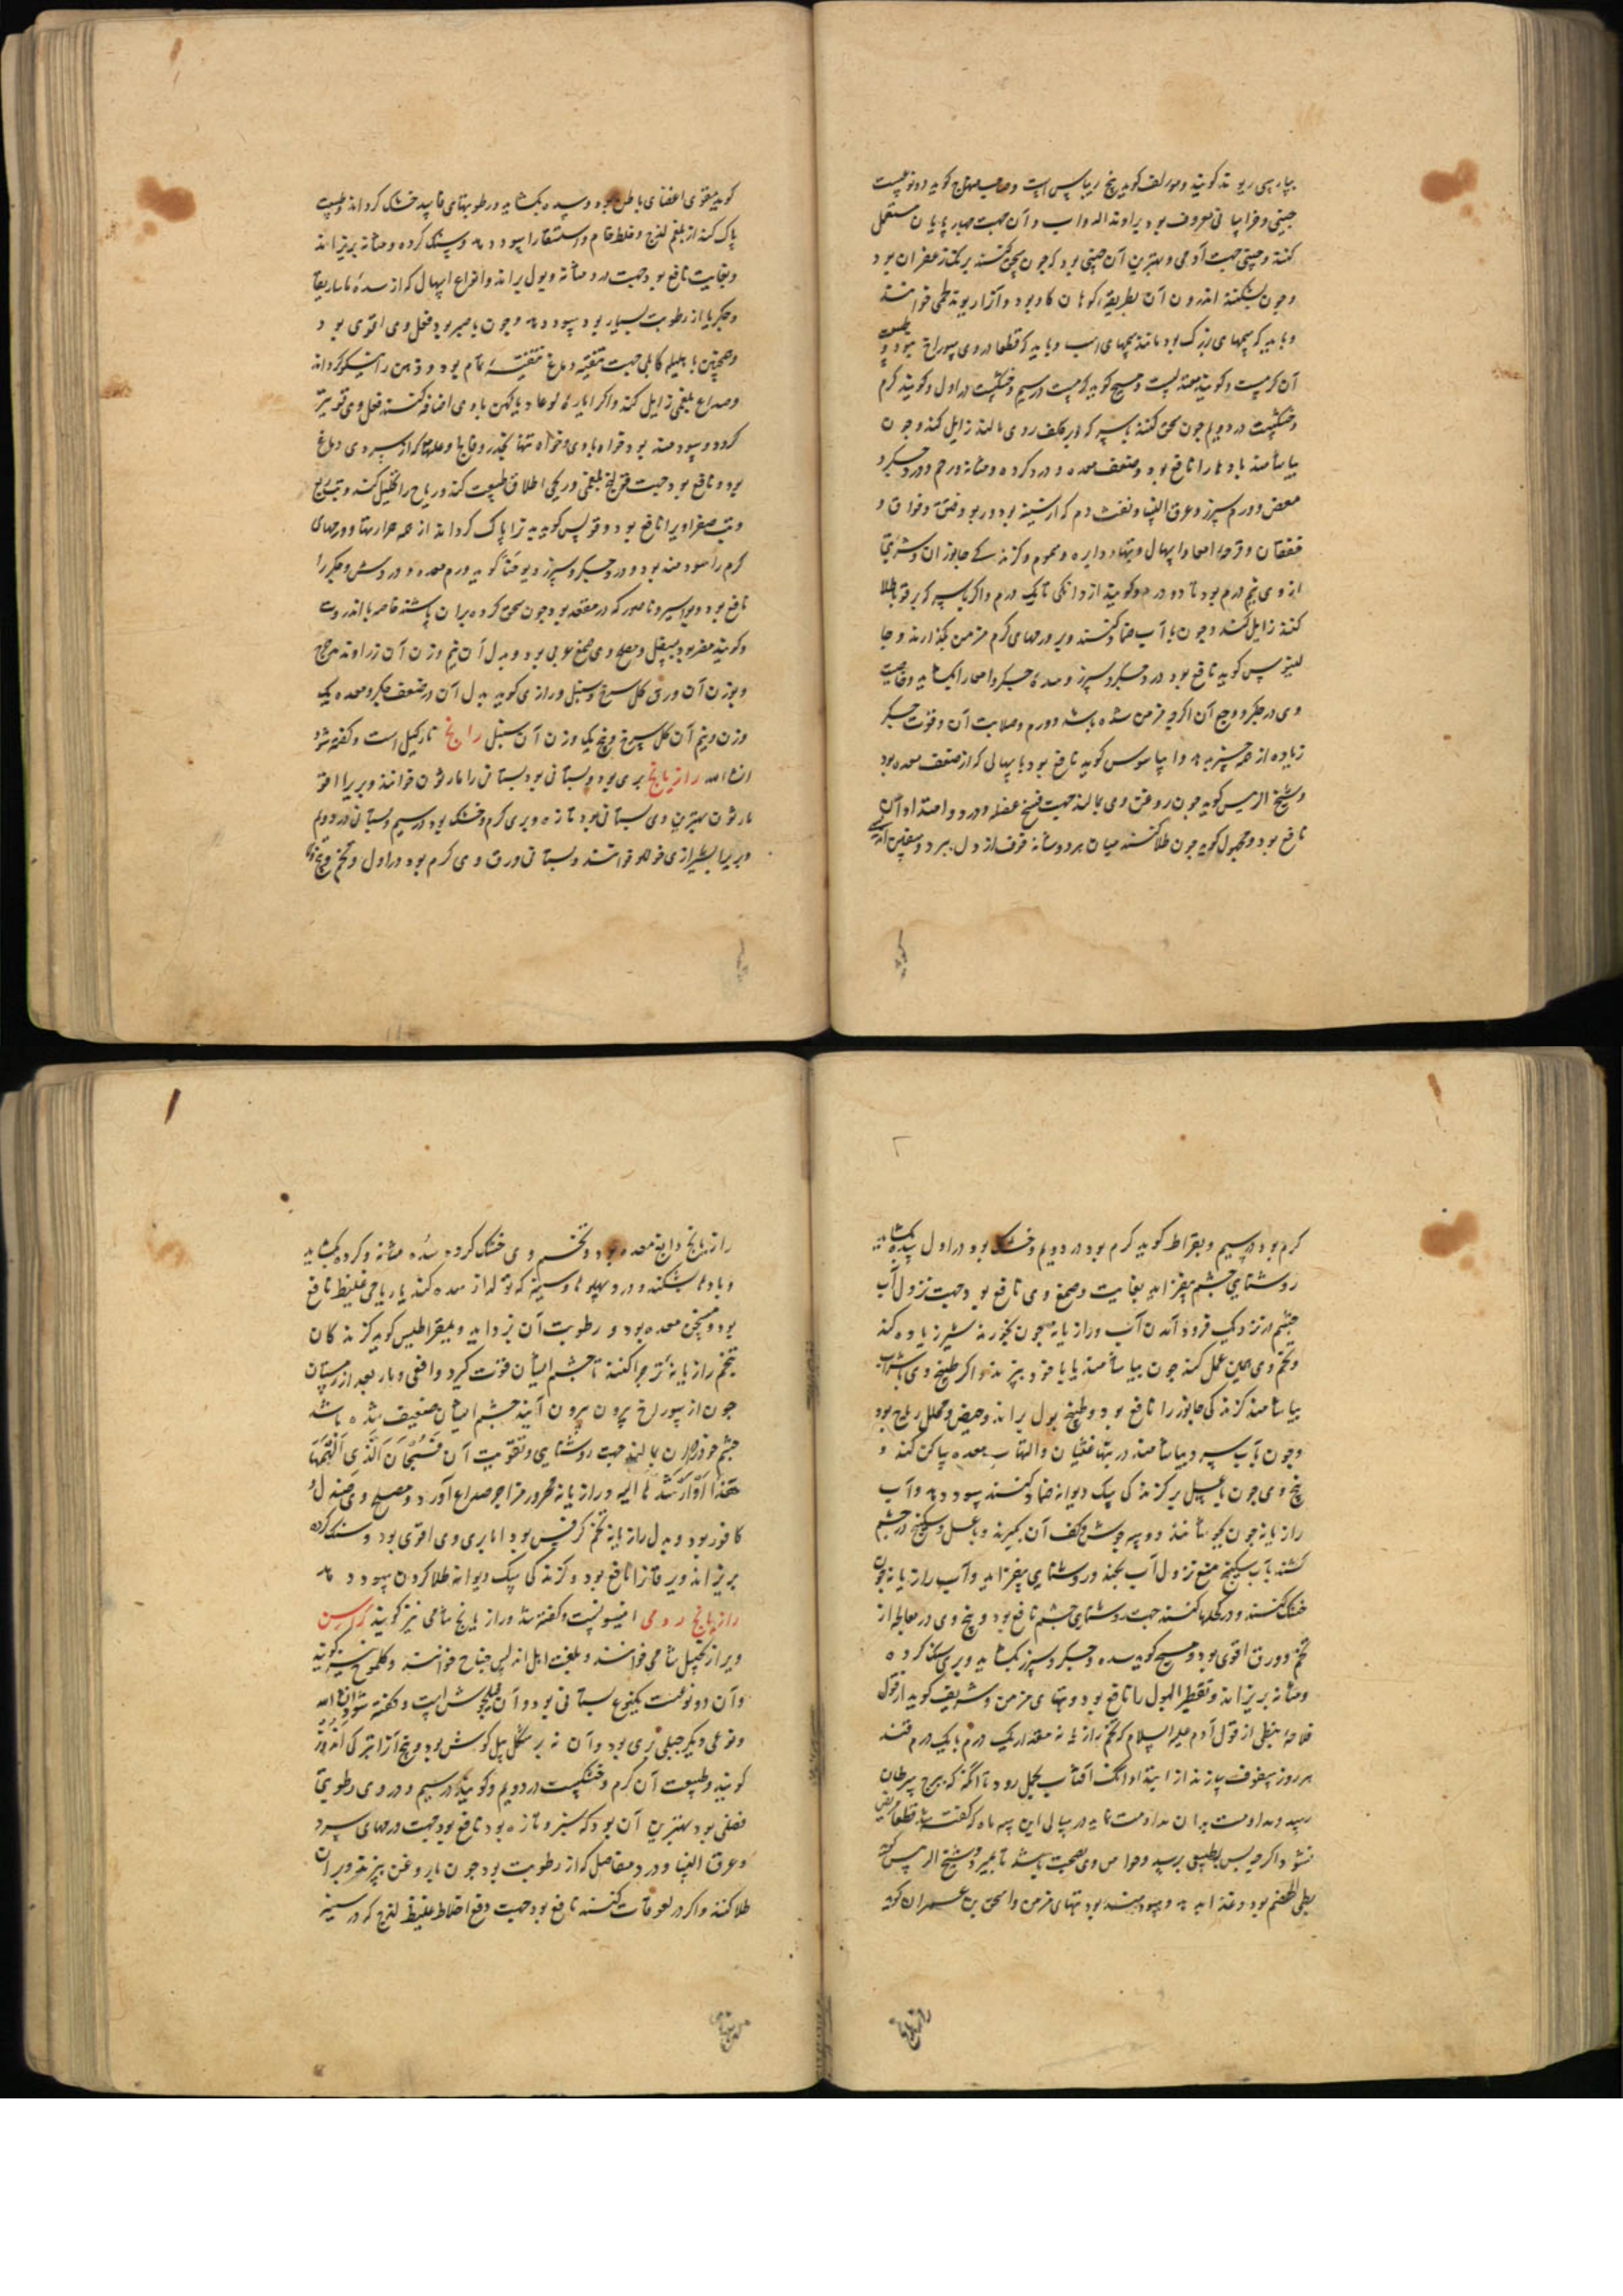 بپارسی ریوند کویند ومولف کوید بیخ ریباس است وصاحب منهاج کوید دو نوعست
چینی وخراسانی معروف بود براوند الدواب و آن جهت چهارپایان مستعمل
کنند وچینی جهت آدمی وبهترین آن چینی بود که چون سحق کنند برنک زعفران بود
وچون بشکنند اندرون آن بطریقه کوهان کاو بود وآنرا ریوند لحمی خوانند
وباید که سمهای بزرک بود مانند سمهای اسب وباید که قطعا در وی سوراخ نبود و طبیعت
آن کرمست وکویند معتدلست ومسیح کوید کرمست در سیم وخشکست در اول وکویند کرم
وخشکست در دویم چون سحق کنند با سرکه و بر کلف روی مالند زایل کند وچون
بیاشامند بادها را نافع بود وضعف معده و درد کرده ومثانه ورحم ودرد جکر و
مغص وورم سپرز وعرق النسا ونفث دم که از سینه بود و ربو وفتق وفواق و
خفقان وقرحه امعا واسهال وتبهاء دایره وسموم وکزندکی جانوران وشربتی
از وی نیم درم بود تا دو درم وکویند از دانکی تا یک درم واکر با سرکه بر قوبا طلا
کنند زایل کند وچون با آب ضماد کنند بر ورمهای کرم مزمن بکدازند وجا
لینوس کوید نافع بود درد جکر وسپرز وسده جکر وامعا را بکشاید وخاصیت
وی در جکر ووجع آن اکرچه مزمن شده باشد وورم وصلابت آن وقوت جکر
زیاده از همه چیز بدهد وایپاسوس کوید نافع بود باسهالی که از ضعف معده بود
وشیخ الرئیس کوید چون روغن وی بمالند جهت فسخ عضله ودرد وامتداد آن
نافع بود ومجهول کوید چون طلا کنند میان هر دو شانه خوف از دل ببرد وسفین اندلسی
کوید مقوی اعضای باطن بود وسده بکشاید ورطوبتهای فاسد خشک کرداند وطبیعت
پاک کند از بلغم لزج وخلط خام واستسقا را سود دهد وسنک کرده ومثانه بریزاند
وبغایت نافع بود جهت درد مثانه وبول براند وانواع اسهال که از سده ماساریقا
وجکر یا از رطوبت بسیار بود سود دهد وچون با صبر بود فعل وی اقوی بود
وهمچنین با هلیله کابلی جهت تنقیه دماغ تنقیه تمام بود وذهن را نیکو کرداند
وصداع بلغمی زایل کند واکر ایارج لوغادیا کهن با وی اضافه کنند فعل وی قویتر
کردد وسودمند بود خواه با وی وخواه تنها بخدر وفالج وعلتها که از سردی دماغ
بود ونافع بود جهت قولنج بلغمی وریحی اطلاق طبیعت کند وریاح را تحلیل کند وتب ربع
وتب صفراویرا نافع بود وفولس کوید بدنرا پاک کرداند از همه حرارتها وورمهای
کرم را سودمند بود ودرد جکر وسپرز ویوحنا کوید ورم معده ودرد شش وجکر را
نافع بود وبواسیر وناصور که در مقعد بود چون سحق کرده بر آن پاشند خاصه با انزروت
وکویند مضر بود بسفل ومصلح وی صمغ عربی بود وبدل آن نیم وزن آن زراوند مدحرج
وبوزن آن ورق کل سرخ وسنبل ورازی کوید بدل آن در ضعف جکر ومعده یک
وزن ونیم آن کل سرخ وپنج یک وزن آن سنبل رانج نارکیل است وکفته شود
انشاء الله رازیانج بری بود وبستانی بود بستانی را مارثون خوانند وبریرا افو
مارثون بهترین وی بستانی بود تازه وبری کرم وخشک بود در سیم وبستانی در دویم
وبریرا بشیرازی خوانند وبستانی ورق وی کرم بود در اول وتخم وبیخ وی
کرم بود در سیم وبقراط کوید کرم بود در دویم وخشک بود در اول سده بکشاید
روشنایی چشم بیفزاید بغایت وصمغ وی نافع بود جهت نزول آب
چشم در نزدیکی فرود آمدن آب ورازیانه چون بخورند شیر زیاده کند
وتخم وی همین عمل کند چون بیاشامند یا با خود بپزند واکر طبیخ وی با شراب
بیاشامند کزندکی جانوران را نافع بود وطبیخ بول براند وحیض ومحلل ریاح بود
وچون بآب سرد بیاشامند در تبها غثیان والتهاب معده ساکن کند و
بیخ وی چون با عسل بر کزندکی سک دیوانه ضماد کنند سود دهد وآب
رازیانه چون بجوشانند دو سه جوش وکف آن بکیرند وبا عسل وسکبینج در چشم
کشند با آب سکبینج منع نزول آب بکند وروشنایی بیفزاید وآب رازیانه چون
خشک کنند ودر کحلها کنند جهت روشنایی چشم نافع بود وبیخ وی در معالجه از
تخم وورق اقوی بود ومسیح کوید سده جکر وسپرز بکشاید وبری سنک کرده
ومثانه بریزاند وتقطیر البول را نافع بود وتبهای مزمن وشریف کوید از قول
فلاحه نبطی از قول آدم علیه السلام که تخم رازیانه مقدار یک درم با یک درم قند
هر روز سفوف سازند از ابتداء آنک آفتاب بحمل رود تا آنکه که ببرج سرطان
رسد ومداومت بدان مداومت نماید در سالی این سه ماه که کفته شد قطعا مریض
نشود اکر چه بسن طبیعی برسد وحواس وی بصحت باشد تا بمیرد وشیخ الرئیس کوید
بطی الهضم بود وغذا بد دهد وسودمند بود تبهای مزمن واسحق بن عمران کوید
رازیانج دابغ معده بود وتخم وی خشک کرده سده مثانه وکرده بکشاید
وبادها بشکند ودرد پهلوها وسینه که تولد از سده کند یا ریاحی غلیظ نافع
بود ومسخن معده بود ورطوبت آن بزداید ودیمقراطیس کوید کزندکان
تخم رازیانه تر چرا کنند تا چشم ایشان قوت کیرد وافعی ومار بعد از زمستان
چون از سوراخ بیرون آیند چشم ایشان ضعیف شده باشد
چشم خود در آن بمالند جهت روشنایی وتقویت آن فسبحان الذی الهمها
هذا وارشدها الیه ورازیانه محرور مزاج صداع آورد ومصلح وی صندل و
کافور بود وبدل رازیانه تخم کرفس بود اما بری وی اقوی بود وسنک کرده
بریزاند ویرقانرا نافع بود وکزندکی سک دیوانه طلا کردن سود دهد
رازیانج رومی انیسونست وکفته شد ورازیانج شامی نیز کویند راسن
ویرا زنجبیل شامی خوانند وبلغت اهل اندلس جناح خوانند وکلموخ نیز کویند
وآن دو نوعست یکنوع بستانی بود وآن فیلجوش است وکفته شود انشاء الله
ونوعی دیکر جبلی بری بود وآن نه بر شکل پیل کوش بود وبیخ آنرا ترکی اندز
کویند وطبیعت آن کرم وخشکست در دویم وکویند در سیم ودر وی رطوبتی
فضلی بود بهترین آن بود که سبز وتازه بود نافع بود جهت ورمهای سرد
وعرق النسا ودرد مفاصل که از رطوبت بود چون با روغن بپزند وبر آن
طلا کنند واکر در لعوقات کنند نافع بود جهت دفع اخلاط غلیظ لزج که در سینه